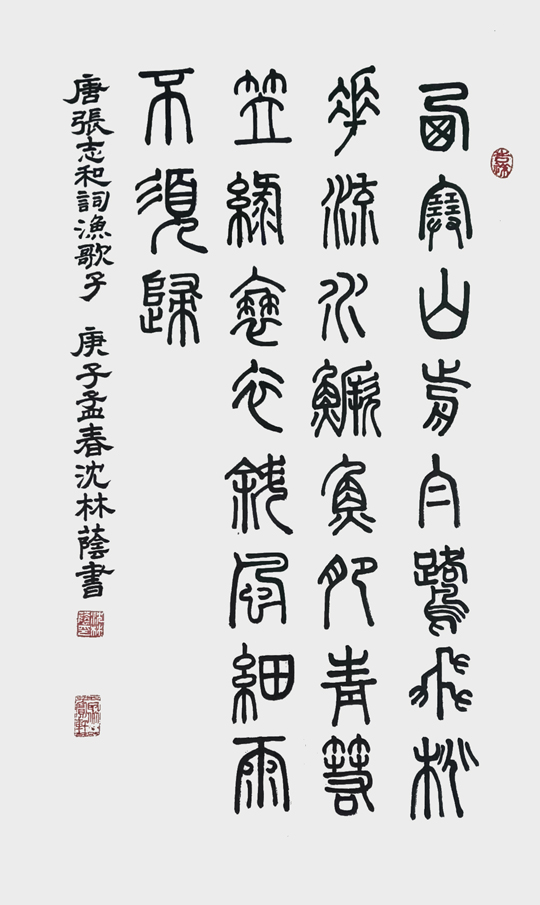 西塞山前白鷺飛桃
華流水鱖魚肥青箬
笠綠蓑衣斜風細雨
不須歸
唐張志和詞漁歌子 庚子孟春沈林蔭書